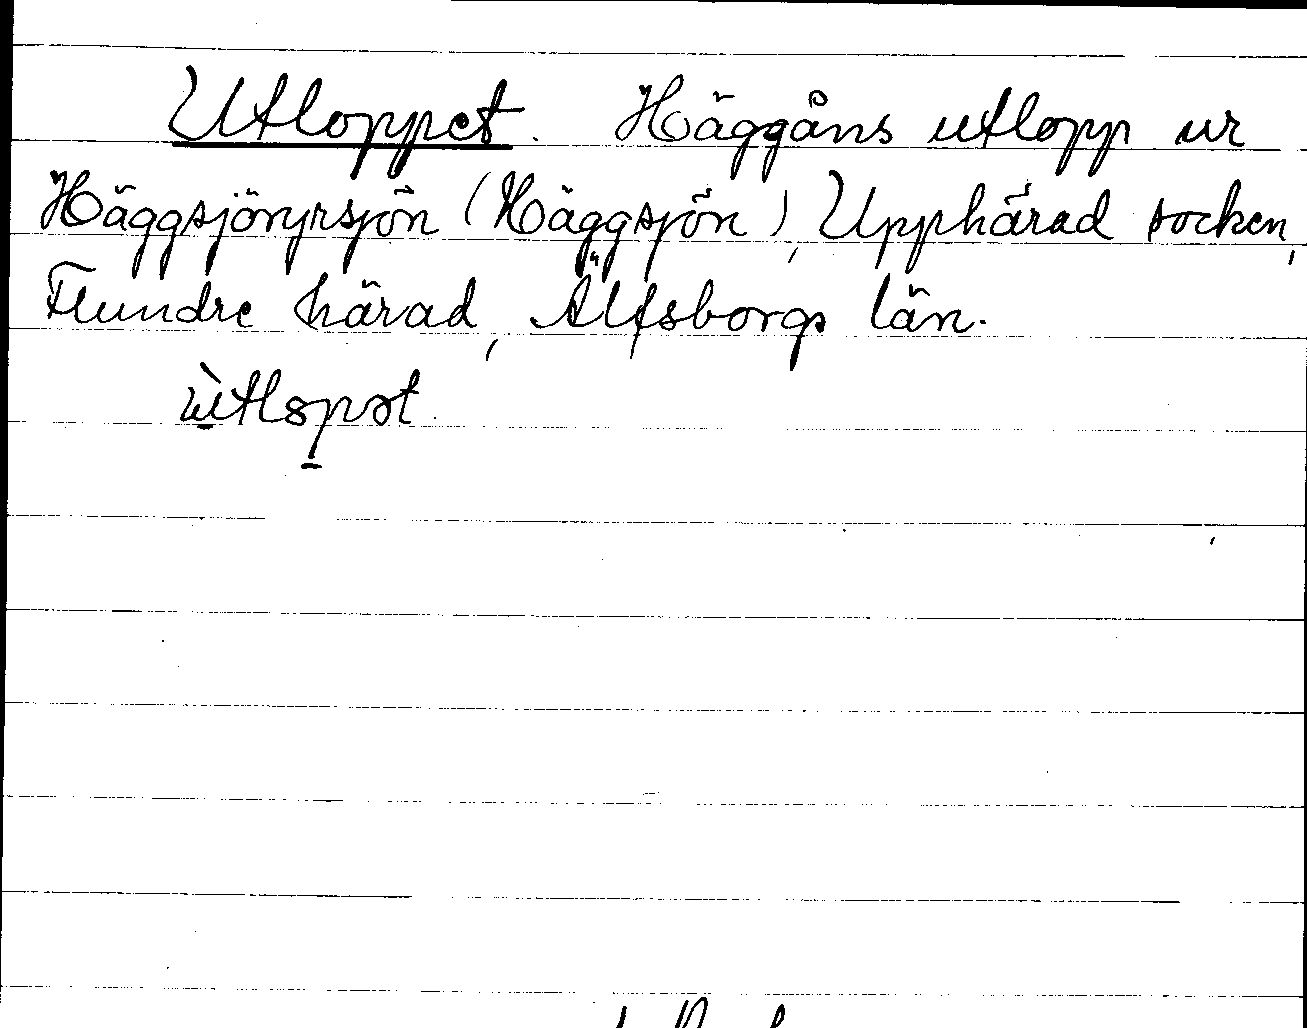 Utloppet. Häggåns utlopp ur
Häggsjöryrsjön (Häggsjön), Upphärad socken,
Flundre härad, Älfsborgs län.
ùtlopət